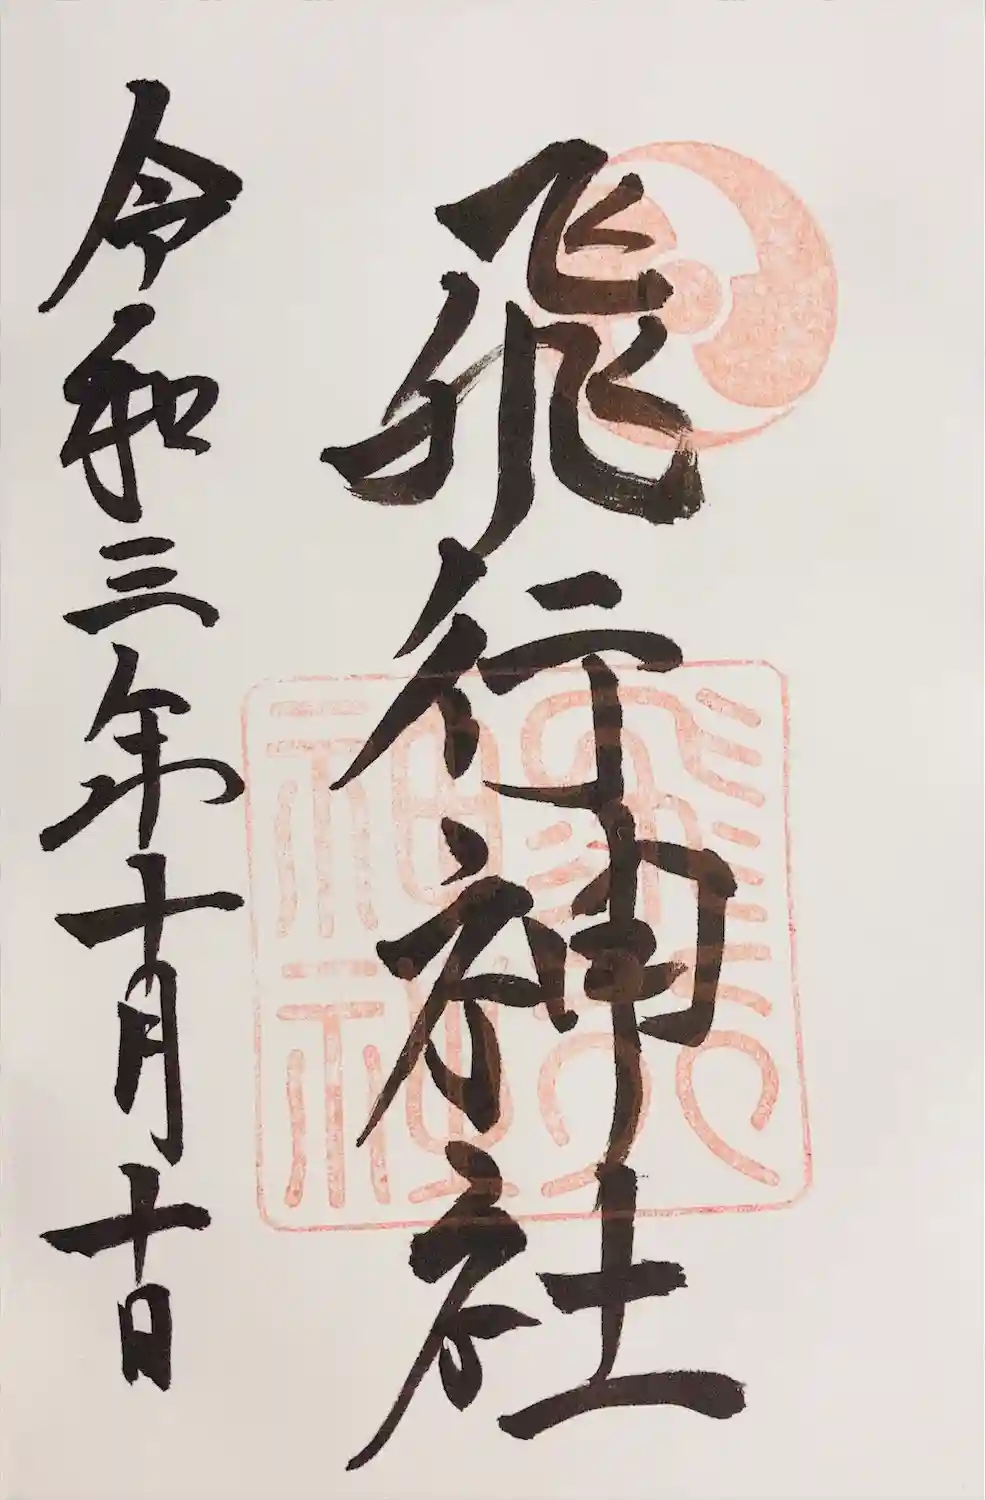 飛行神社
令和三年十月十日